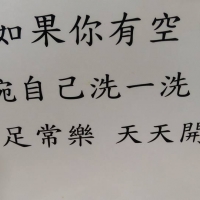 如果你有空
碗自己洗一洗
足常樂 天天開